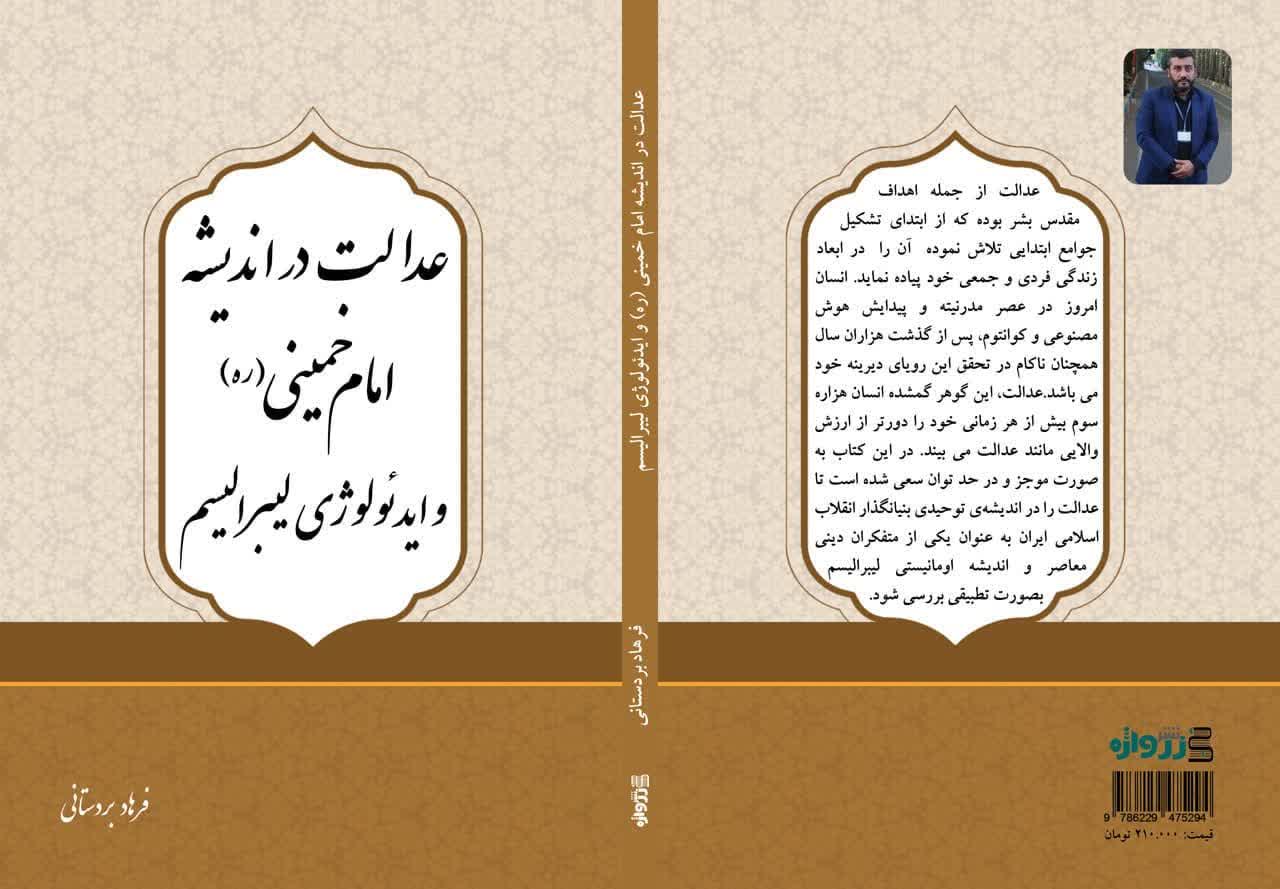 عدالت در اندیشه
امام خمینی (ره)
و ایدئولوژی لیبرالیسم
فرهاد بردستانی
عدالت در اندیشه امام خمینی (ره) و ایدئولوژی لیبرالیسم
فرهاد بردستانی
نشر
زرواژه
عدالت از جمله اهداف
مقدس بشر بوده که از ابتدای تشکیل
جوامع ابتدایی تلاش نموده آن را در ابعاد
زندگی فردی و جمعی خود پیاده نماید. انسان
امروز در عصر مدرنیته و پیدایش هوش
مصنوعی و کوانتوم، پس از گذشت هزاران سال
همچنان ناکام در تحقق این رویای دیرینه خود
می باشد.عدالت، این گوهر گمشده انسان هزاره
سوم بیش از هر زمانی خود را دورتر از ارزش
والایی مانند عدالت می بیند. در این کتاب به
صورت موجز و در حد توان سعی شده است تا
عدالت را در اندیشه‌ی توحیدی بنیانگذار انقلاب
اسلامی ایران به عنوان یکی از متفکران دینی
معاصر و اندیشه اومانیستی لیبرالیسم
بصورت تطبیقی بررسی شود.
نشر
زرواژه
9 786229 475294
قیمت: ۲۱۰.۰۰۰ تومان